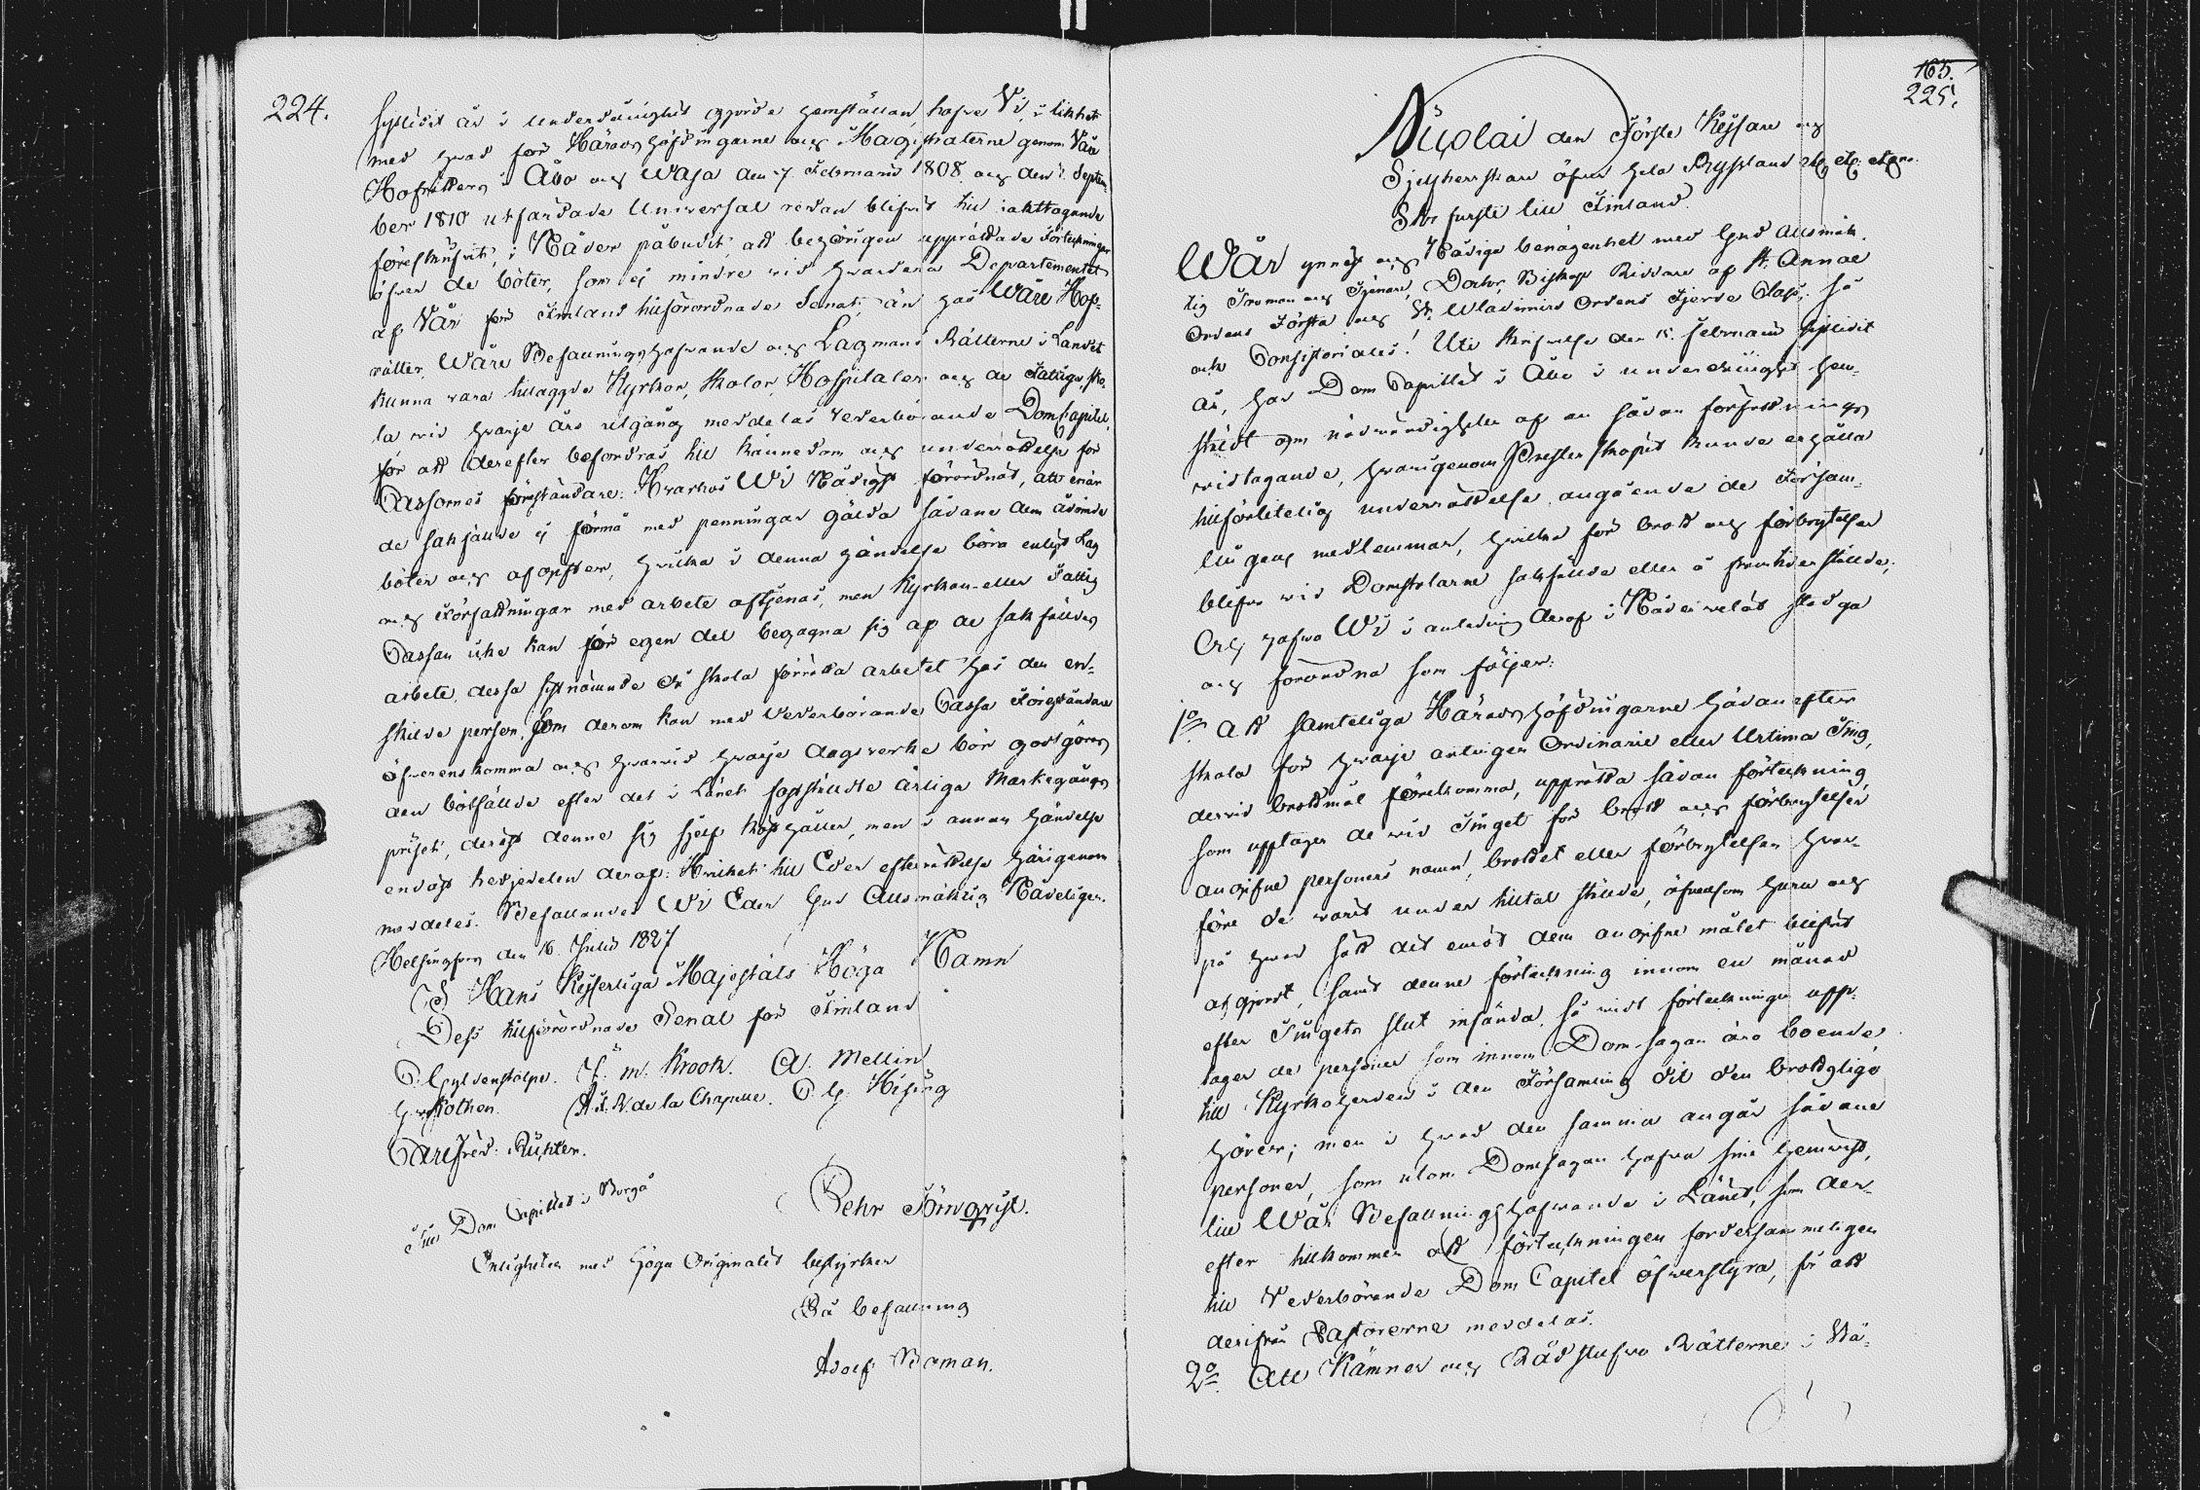 224.
sistlidit år i underdånighet gjorde hemställan hafve Vi, i likhet
med hvad för Häradshöfdingarne och Magistraterne genom Våra
Hofrätters i Åbo och Wasa den 7 Februarii 1808 och den 1. Septem
ber 1810 utfärdade Universal redan blifvit till iakttagande
föreskrifvit, i Nåder påbudit, att behörigen upprättade Förteckningar
öfver de böter, som ej mindre vid hvardera Departementet
af Vår för Finland tillförordnade Senat, än hos Wåre Hof-
rätter, Wåre Befallningshafvande och Lagmans Rätterne i Landet
kunna vara tillagde Kyrkor, Skolor, Hospitaler och de Fattige, sko-
la vid hvarje års utgång meddelas vederbörande DomCapitel,
för att derefter befordras till kännedom och underrättelse för
Cassornes föreståndare: Hvarhos Wi Nådigst förordnat, att enär
de sakfällde ej förmå med penningar gälda sådane dem ådömde
böter och afgifter, hvilka i denna händelse böra enligt Lag
och Författningar med arbete aftjenas, men Kyrkan eller Fattig
Cassan icke kan för egen del begagna sig af de sakfälldes
arbete, dessa sistnämnde då skola förrätta arbetet hos den en-
skilde person, som derom kan med Vederbörande Cassa Föreståndare
öfverenskomma och hvarvid hvarje dagsverke bör godtgöras
den bötfällde efter det i Länet fastställdte årliga Markegångs
priset, derest denne sig sjelf kosthåller, men i annan händelse
endast tredjedelen deraf: Hvilket till Eder efterrättelse härigenom
meddelas. Befallandes Wi Eder Gud Allsmäktig Nådeligen.
Helsingfors den 16 Julii 1827
I Hans Kejserliga Majestäts Höga Namn
Dess tillförordnade Senat för Finland
C. Gyldenstolpe. J. M. Krook. A. Mellin
G. v Kothen. A. F. R. de la Chapelle. C. G. Hising
Carl Fred: Richter.
Pehr Törnqvist.
Till Dom Capitlet i Borgå
Enligheten med höga Originalet bestyrker
På befallning
Adolf Boman.
165.
225.
Nicolai den Förste Kejsare och
Sjelfherrskare öfver hela Ryssland etc. etc. etc.
Stor furste till Finland.
Wår ynnest och Nådiga benägenhet med Gud Allsmäk-
tig Troman och Tjenare, Doctor, Biskop Riddare af St. Annæ
Ordens Första och St. Wladimirs Ordens Fjerde Class; så
ock Consistoriales! Uti skrifvelse den 15. Februarii sistlidit
år, har Dom Capitlet i Åbo i underdånighet hem-
ställt om nödvändigheten af en sådan författnings
vidtagande, hvarigenom Presterskapet kunde erhålla
tillförlitelig underrättelse angående de Försam-
lingens medlemmar, hvilka för brott och förbrytelser
blifva vid Domstolarne sakfällde eller å framtiden ställde;
Och hafva Wi i anledning deraf i Nåder velat stadga
och förordna som följer:
1o att samteliga Häradshöfdingarne hädanefter
skola för hvarje antingen Ordinarie eller Urtima Ting,
dervid brottmål förekomma, upprätta sådan förteckning,
som upptager de vid Tinget för brott och förbrytelser
angifne personers namn, brottet eller förbrytelsen hvar-
före de varit under tilltal ställde, äfvensom huru och
på hvad sätt det emot dem angifne målet blifvit
afgjordt, samt denne förteckning innom en månad
efter Tingets slut insända, så vidt förteckningen upp-
tager de personer som innom Dom sagan äro boende,
till Kyrkoherden i den Församling dit den brottslige
hörer; men i hvad den samma angår sådane
personer, som utom Domsagan hafva sina hemvist,
till Wår Befallningshafvande i Länet, som der-
efter tillkommer att förteckningen fordersammeligen
till Vederbörande Dom Capitel öfverstyra, för att
derifrån Pastorerne meddelas.
2o Att Kämner och Rådstufvu Rätterne i Stä-